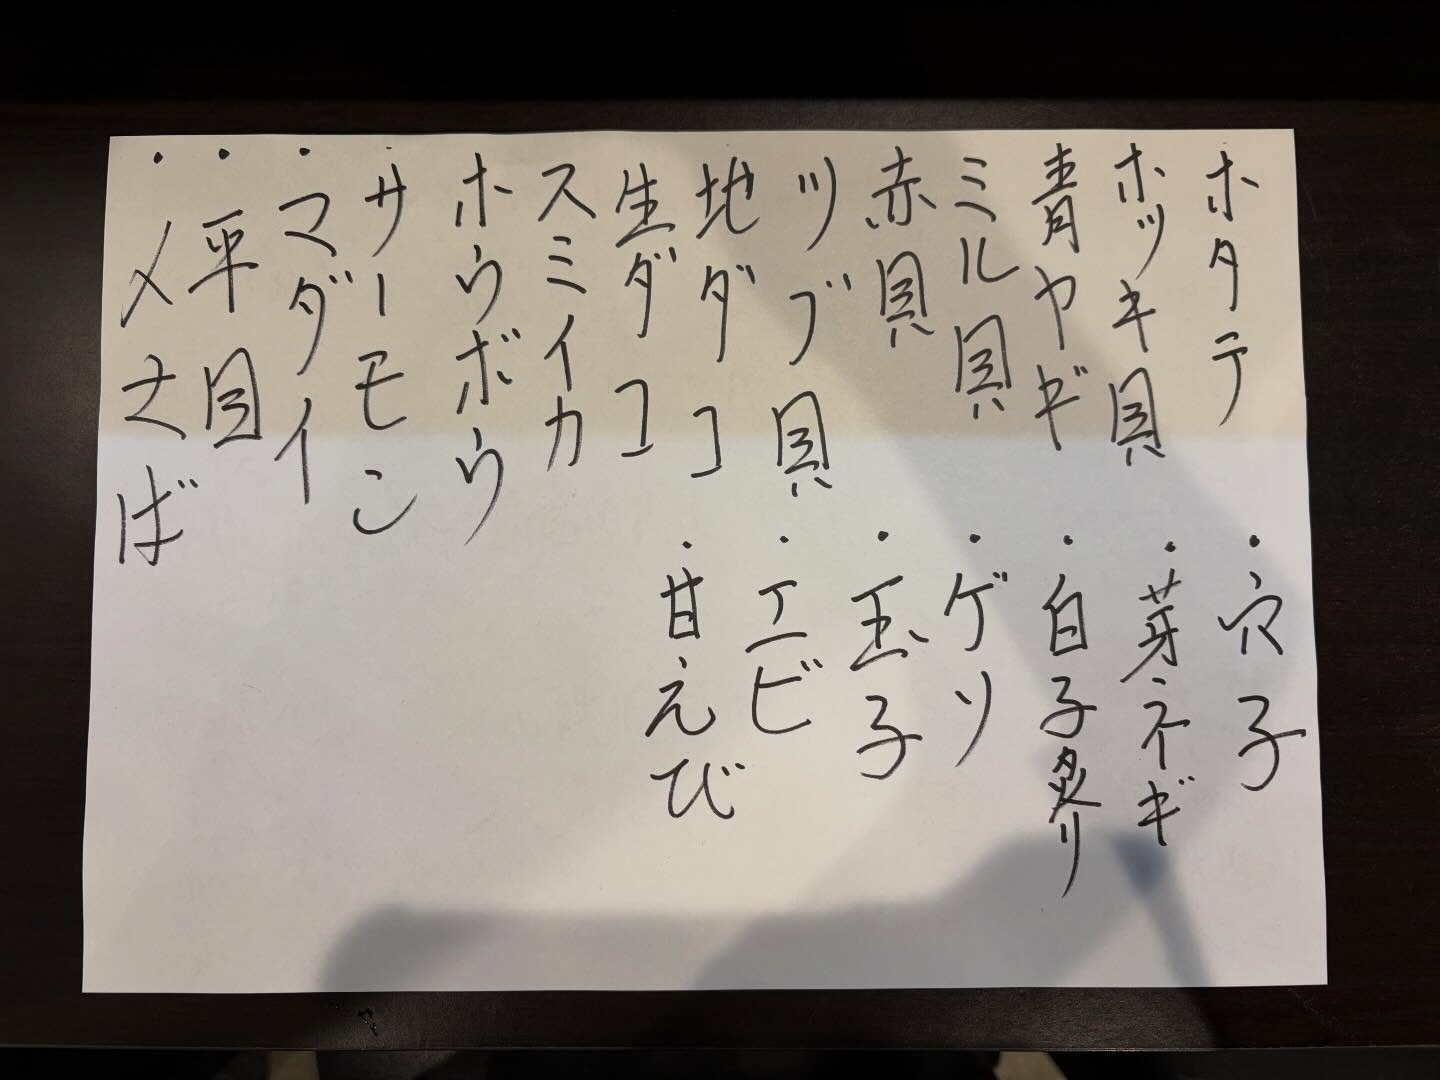 ・ホタテ
・ホッキ貝
・青ヤギ
・ミル貝
・赤貝
・ツブ貝
・地ダコ
・生ダコ
・スミイカ
・ホウボウ
・サーモン
・マダイ
・平目
・〆さば
・穴子
・芽ネギ
・白子炙り
・ゲソ
・玉子
・エビ
・甘えび